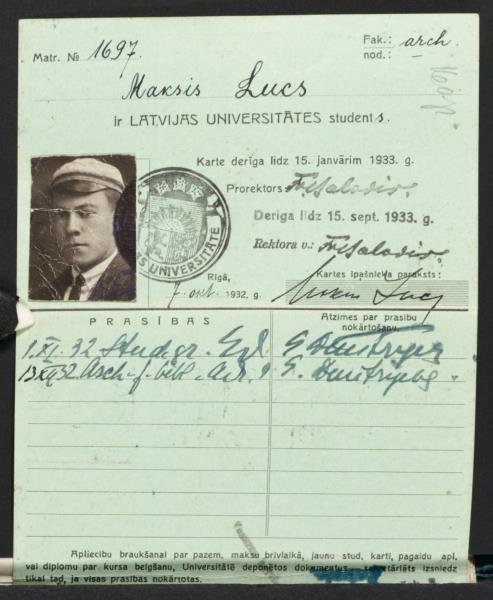 Matr. № 1697.
Fak.: arch.
nod.: —
Maksis Lucs
ir LATVIJAS UNIVERSITĀTES students.
Karte derīga līdz 15. janvārim 1933. g.
Prorektors
Derīga līdz 15. sept. 1933. g.
Rektora v.:
UNIVERSITĀTE
Rīgā,
Kartes īpašnieka paraksts:
7. okt. 1932. g.
PRASĪBAS
Atzīmes par prasību nokārtošanu.
1. XI. 32 Stud. gr.
13 XII 32. Arch. f. bibl.
Apliecību braukšanai par pazem. maksu brīvlaikā, jaunu stud. karti, pagaidu apl.
vai diplomu par kursa beigšanu, Universitātē deponētos dokumentus sekretāriāts izsniedz
tikai tad, ja visas prasības nokārtotas.